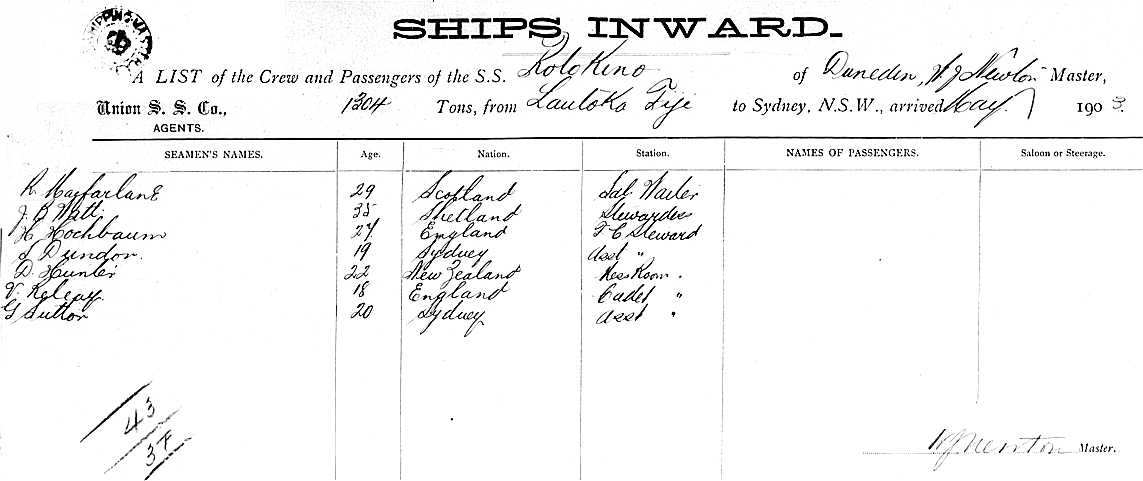 SHIPS INWARD.
A LIST of the Crew and Passengers of the S.S. Rotokino of Duneden, W J Newton Master,
Union S. S. Co., 1304 Tons, from Lautoka Fiji to Sydney, N.S.W., arrived May 7 1903.
AGENTS.
SEAMEN'S NAMES. Age. Nation. Station. NAMES OF PASSENGERS. Saloon or Steerage.
R. Macfarlane 29 Scotland Sal Waiter
J. B Watt. 35 Shetland Stewardess
H Hochbaum 27 England F C Steward
S Dundon. 19 Sydney Asst "
D. Hunter 22 New Zealand Mess Room "
V. 18 England Cadet "
G Sutton 20 Sydney Asst "
43
37
WJ Newton Master.